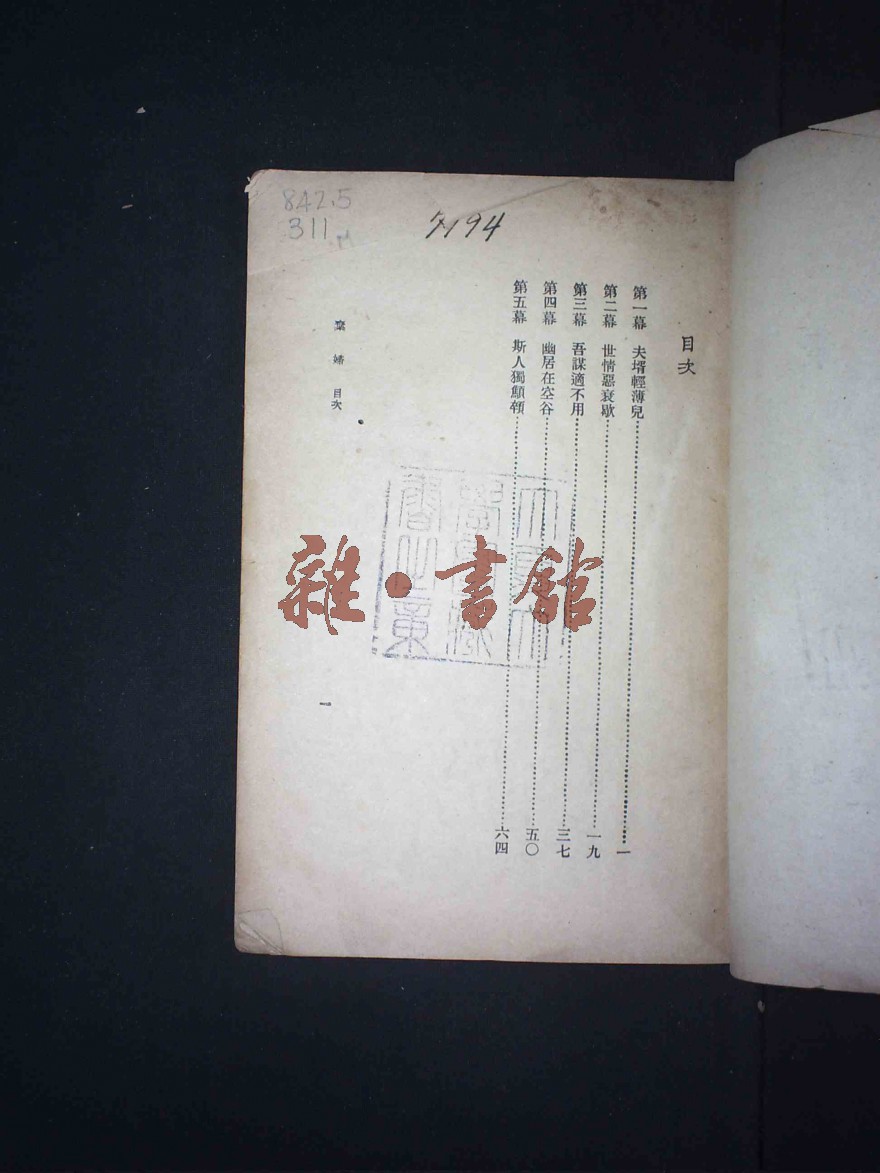 842.5
311
7194
目次
第一幕 夫壻輕薄兒……一
第二幕 世情惡衰歇……一九
第三幕 吾謀適不用……三七
第四幕 幽居在空谷……五〇
第五幕 斯人獨顦顇……六四
棄婦 目次
一
雜·書館